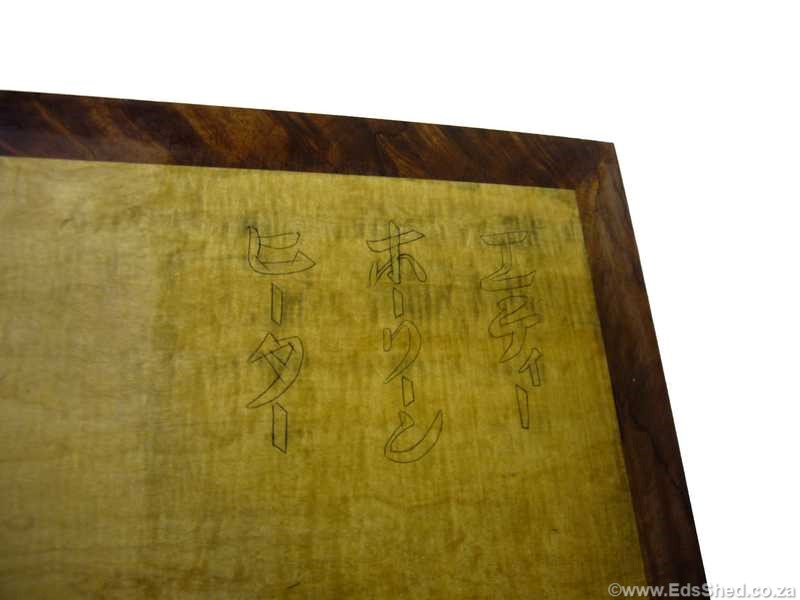 エディー
ホーリーン
ヒーター
©www.EdsShed.co.za